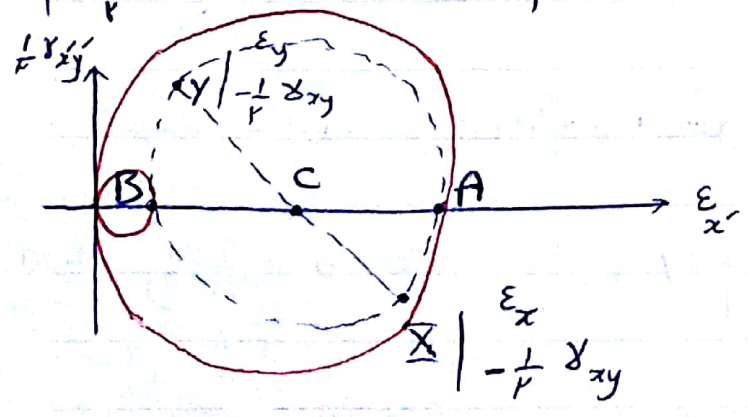 ½ γx'y'
εy
Y | -½ γxy
B
C
A
εx'
X | εx
-½ γxy